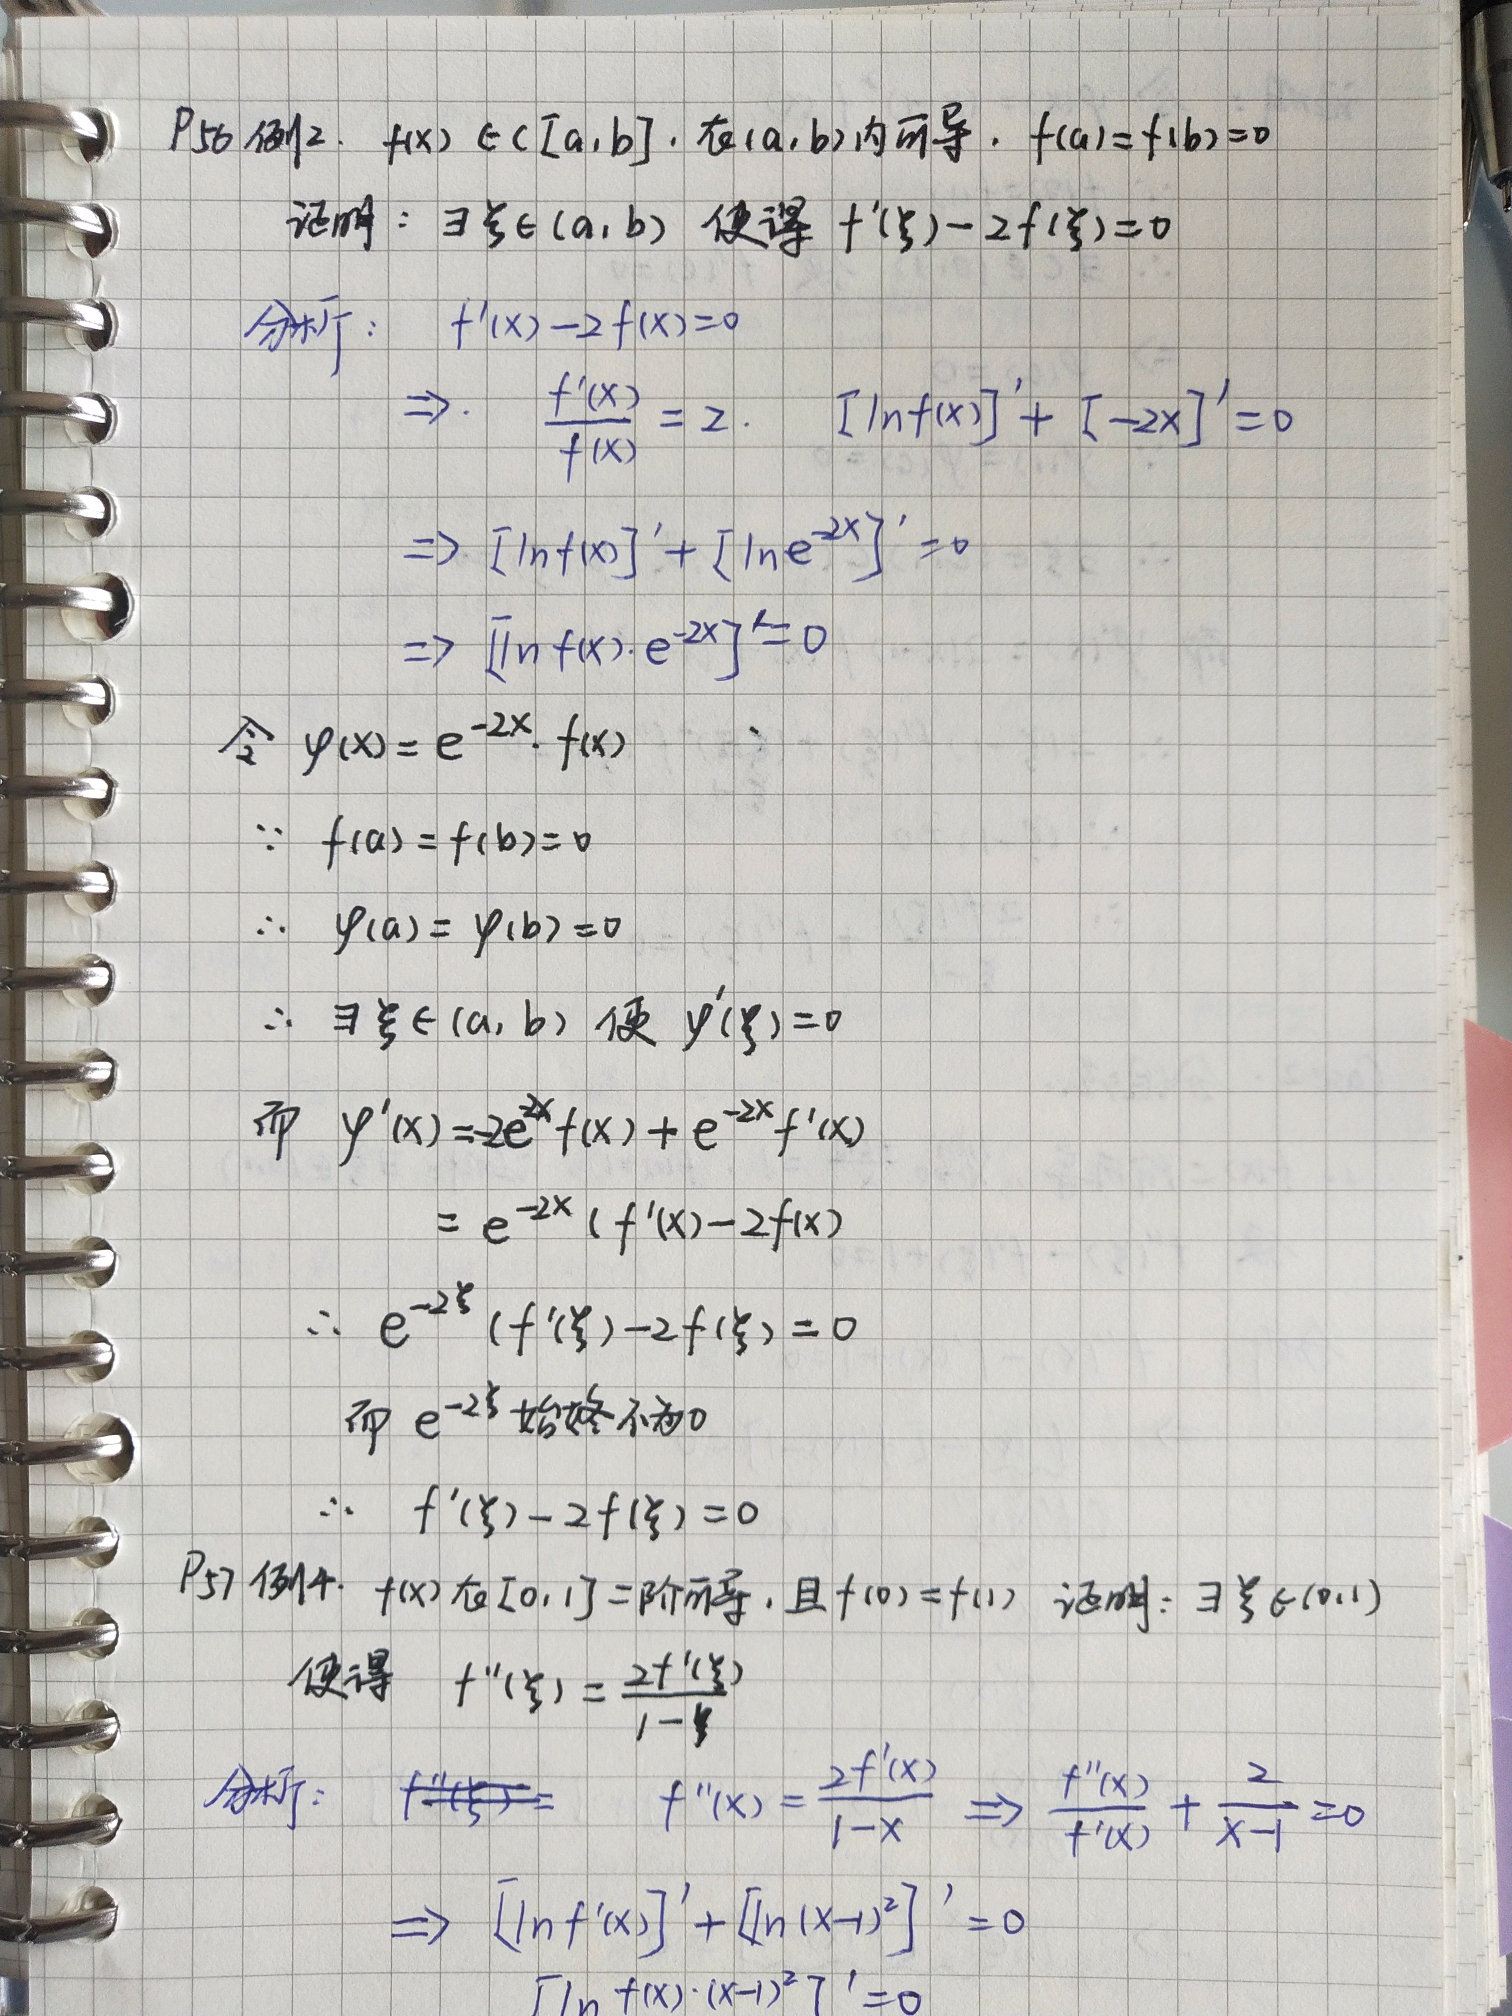 P56 例2. f(x) ∈ C[a,b]. 在(a,b)内可导. f(a)=f(b)=0
证明: ∃ξ∈(a,b) 使得 f'(ξ)-2f(ξ)=0
分析: f'(x)-2f(x)=0
⇒. f'(x)/f(x) = 2. [lnf(x)]' + [-2x]' = 0
⇒ [lnf(x)]' + [lne^{-2x}]' = 0
⇒ [ln f(x)·e^{-2x}]' = 0
令 φ(x) = e^{-2x}·f(x)
∵ f(a) = f(b) = 0
∴ φ(a) = φ(b) = 0
∴ ∃ξ∈(a,b) 使 φ'(ξ) = 0
而 φ'(x) = -2e^{-2x}f(x) + e^{-2x}f'(x)
= e^{-2x}(f'(x)-2f(x)
∴ e^{-2ξ}(f'(ξ)-2f(ξ) = 0
而 e^{-2ξ} 始终不为0
∴ f'(ξ)-2f(ξ) = 0
P57 例4. f(x)在[0,1]二阶可导, 且f(0)=f(1) 证明: ∃ξ∈(0,1)
使得 f''(ξ) = 2f'(ξ)/1-ξ
分析: f''(ξ) = f''(x) = 2f'(x)/1-x ⇒ f''(x)/f'(x) + 2/x-1 = 0
⇒ [ln f'(x)]' + [ln(x-1)²]' = 0
[ln f(x)·(x-1)²]' = 0